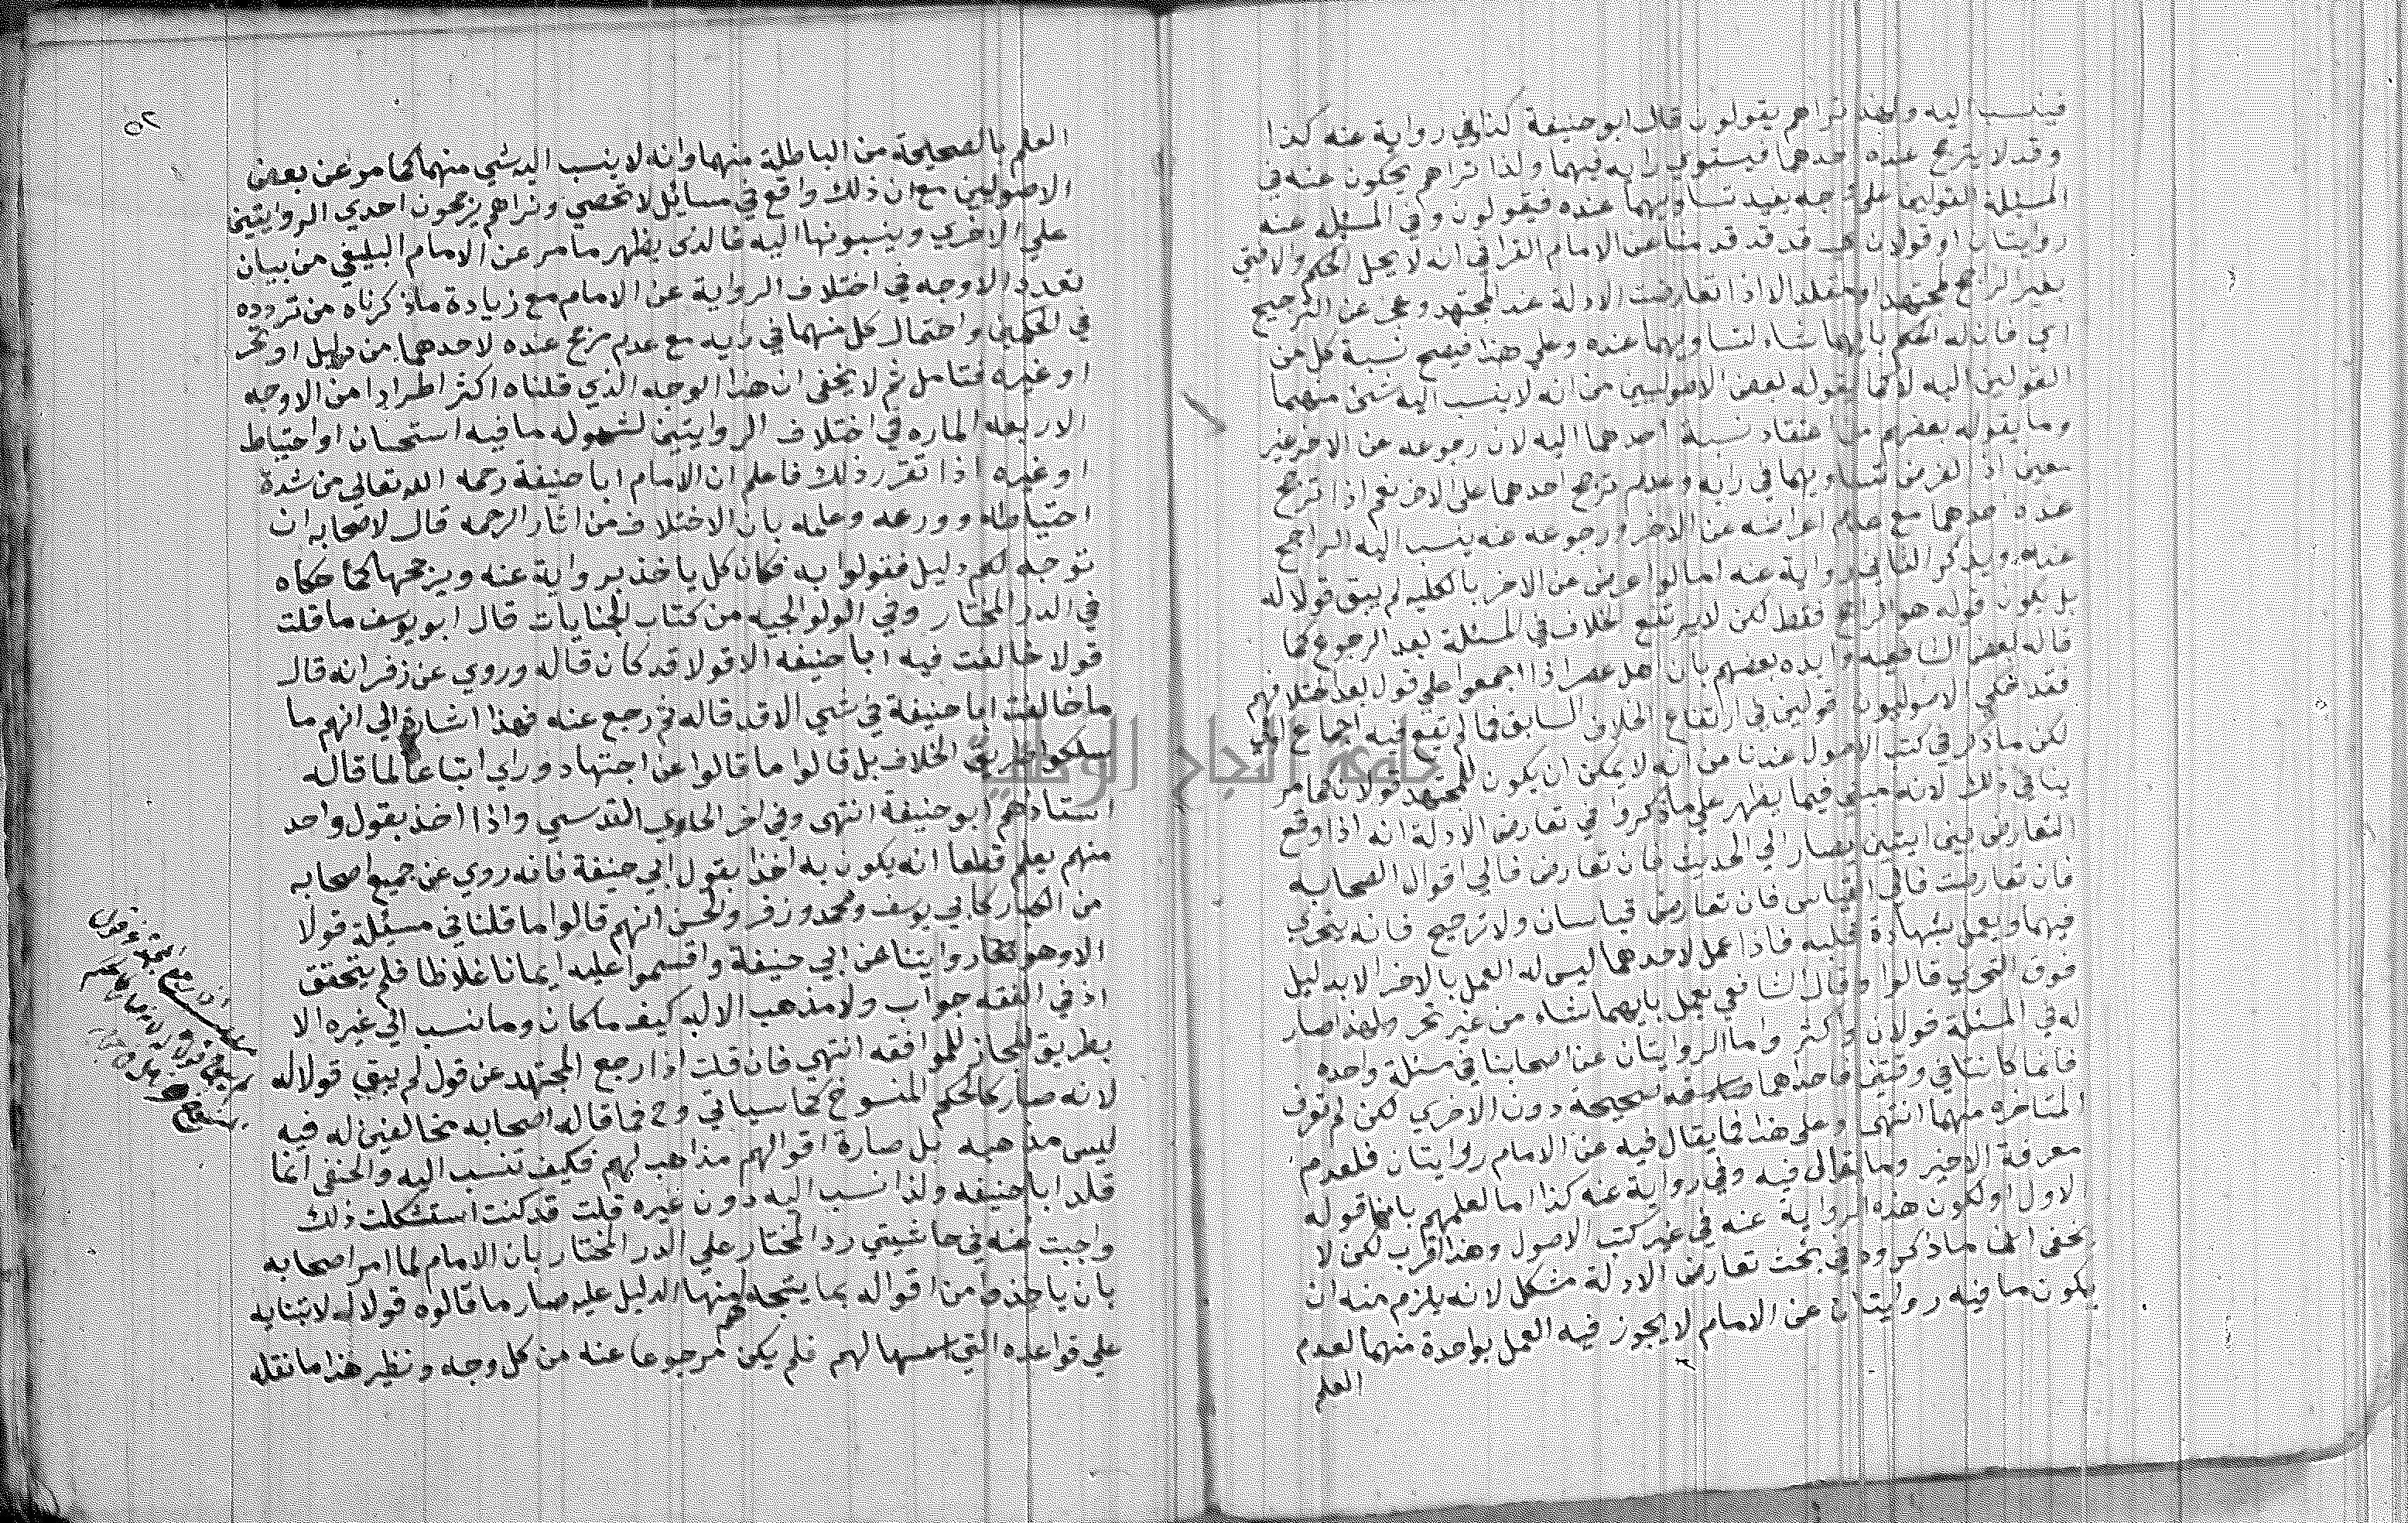 فينسب اليه ولهذا تراهم يقولون قال ابو حنيفة كذا وفي رواية عنه كذا
وقد لا يترجح عنده احدهما فيستوي رايه فيهما ولذا تراهم يحكون عنه في
المسئلة القولين على وجه يفيد تساويهما عنده فيقولون وفي المسئلة عنه
روايتان او قولان وقد قدمنا عن الامام القرافي انه لا يحل الحكم والافتي
بغير الراجح لمجتهد او مقلد الا اذا تعارضت الادلة عند المجتهد وعجز عن الترجيح
اي فان له الحكم بايهما شاء لتساويهما عنده وعلى هذا فيصح نسبة كل من
القولين اليه لا كما يقوله بعض الاصوليين من انه لا ينسب اليه شئ منهما
وما يقوله بعضهم من اعتقاد نسبة احدهما اليه لان رجوعه عن الاخر غير
معين اذ الفرض تساويهما في رايه وعدم ترجح احدهما على الاخر نعم اذا ترجح
عنده احدهما مع عدم اعراضه عن الاخر ورجوعه عنه ينسب اليه الراجح
عنده ويذكر الثاني رواية عنه اما لو اعرض عن الاخر بالكليه لم يبق قولا له
بل يكون قوله هو الراجح فقط لكن لا يرتفع الخلاف في المسئلة بعد الرجوع كما
قاله بعض الشافعيه وايده بعضهم بان اهل عصر اذا اجمعوا على قول بعد اختلافهم
فقد حكي الاصوليون قولين في ارتفاع الخلاف السابق فما لم يقع فيه اجماع اولى
لكن ما ذكر في كتب الاصول عندنا من انه لا يمكن ان يكون للمجتهد قولان كما مر
ينافي ذلك لانه مبني فيما يظهر على ما ذكروا في تعارض الادلة انه اذا وقع
التعارض بين ايتين يصار الى الحديث فان تعارض فالى اقوال الصحابه
فان تعارضت فالى القياس فان تعارض قياسان ولا ترجيح فانه يتحري
فيهما ويعمل بشهادة قلبه فاذا عمل لاحدهما ليس له العمل بالاخر الا بدليل
فوق التحري قالوا وقال الشافعي يعمل بايهما شاء من غير تحر ولهذا صار
له في المسئلة قولان واكثر واما الروايتان عن اصحابنا في مسئلة واحده
فانما كانتا في وقتين فاحداهما صحيحة دون الاخري لكن لم تعرف
المتاخره منهما انتهى وعلى هذا فما يقال فيه عن الامام روايتان فلعدم
معرفة الاخير وما يقال فيه وفي رواية عنه كذا اما لعلمهم بانها قوله
الاول او لكون هذه الرواية عنه في غير كتب الاصول وهذا اقرب لكن لا
يخفى ان ما ذكروه في بحث تعارض الادلة مشكل لانه يلزم منه ان
يكون ما فيه روايتان عن الامام لا يجوز فيه العمل بواحدة منهما لعدم
العلم
٥٢
العلم بالصحيحة من الباطلة منهما وانه لا ينسب اليه شي منهما كما مر عن بعض
الاصوليين مع ان ذلك واقع في مسائل لا تحصي وتراهم يرجحون احدي الروايتين
علي الاخري وينسبونها اليه فالذي يظهر ما مر عن الامام البليغي من بيان
تعدد الاوجه في اختلاف الرواية عن الامام مع زيادة ما ذكرناه من تردده
في الحكمين واحتمال كل منهما في رايه مع عدم مرجح عنده لاحدهما من دليل او تحر
او غيره فتامل ثم لا يخفى ان هذا الوجه الذي قلناه اكثر اطرادا من الاوجه
الاربعه الماره في اختلاف الروايتين لشموله ما فيه استحسان او احتياط
او غيره اذا تقرر ذلك فاعلم ان الامام ابا حنيفة رحمه الله تعالي من شدة
احتياطه وورعه وعلمه بان الاختلاف من اثار الرحمه قال لاصحابه ان
توجه لكم دليل فقولوا به فكان كل ياخذ برواية عنه ويرجحها كما حكاه
في الدر المختار وفي الولوالجيه من كتاب الجنايات قال ابو يوسف ما قلت
قولا خالفت فيه ابا حنيفه الا قولا قد كان قاله وروي عن زفر انه قال
ما خالفت ابا حنيفة في شي الا قد قاله ثم رجع عنه فهذا اشارة الي انهم ما
سلكوا طريق الخلاف بل قالوا ما قالوا عن اجتهاد وراي اتباعا لما قاله
استاذهم ابو حنيفة انتهى وفي اخر الحاوي القدسي واذا اخذ بقول واحد
منهم يعلم قطعا انه يكون به اخذا بقول ابي حنيفة فانه روي عن جميع اصحابه
من الكبار كابي يوسف ومحمد وزفر والحسن انهم قالوا ما قلنا في مسئلة قولا
الا وهو روايتنا عن ابي حنيفة واقسموا عليه ايمانا غلاظا فلم يتحقق
اذ في الفقه جواب ولا مذهب الا له كيف ما كان وما نسب الي غيره الا
بطريق المجاز للموافقه انتهي فان قلت اذا رجع المجتهد عن قول لم يبقي قولا له
لانه صار كالحكم المنسوخ كما سياتي وح فما قاله اصحابه مخالفين له فيه
ليس مذهبه بل صارة اقوالهم مذاهب لهم فكيف تنسب اليه والحنفي انما
قلد ابا حنيفه ولذا نسب اليه دون غيره قلت قد كنت استشكلت ذلك
واجبت عنه في حاشيتي رد المختار علي الدر المختار بان الامام لما امر اصحابه
بان ياخذوا من اقواله بما يتجه لهم منها الدليل عليه صار ما قالوه قولا له لابتنايه
علي قواعده التي اسسها لهم فلم يكن مرجوعا عنه من كل وجه ونظير هذا ما نقله